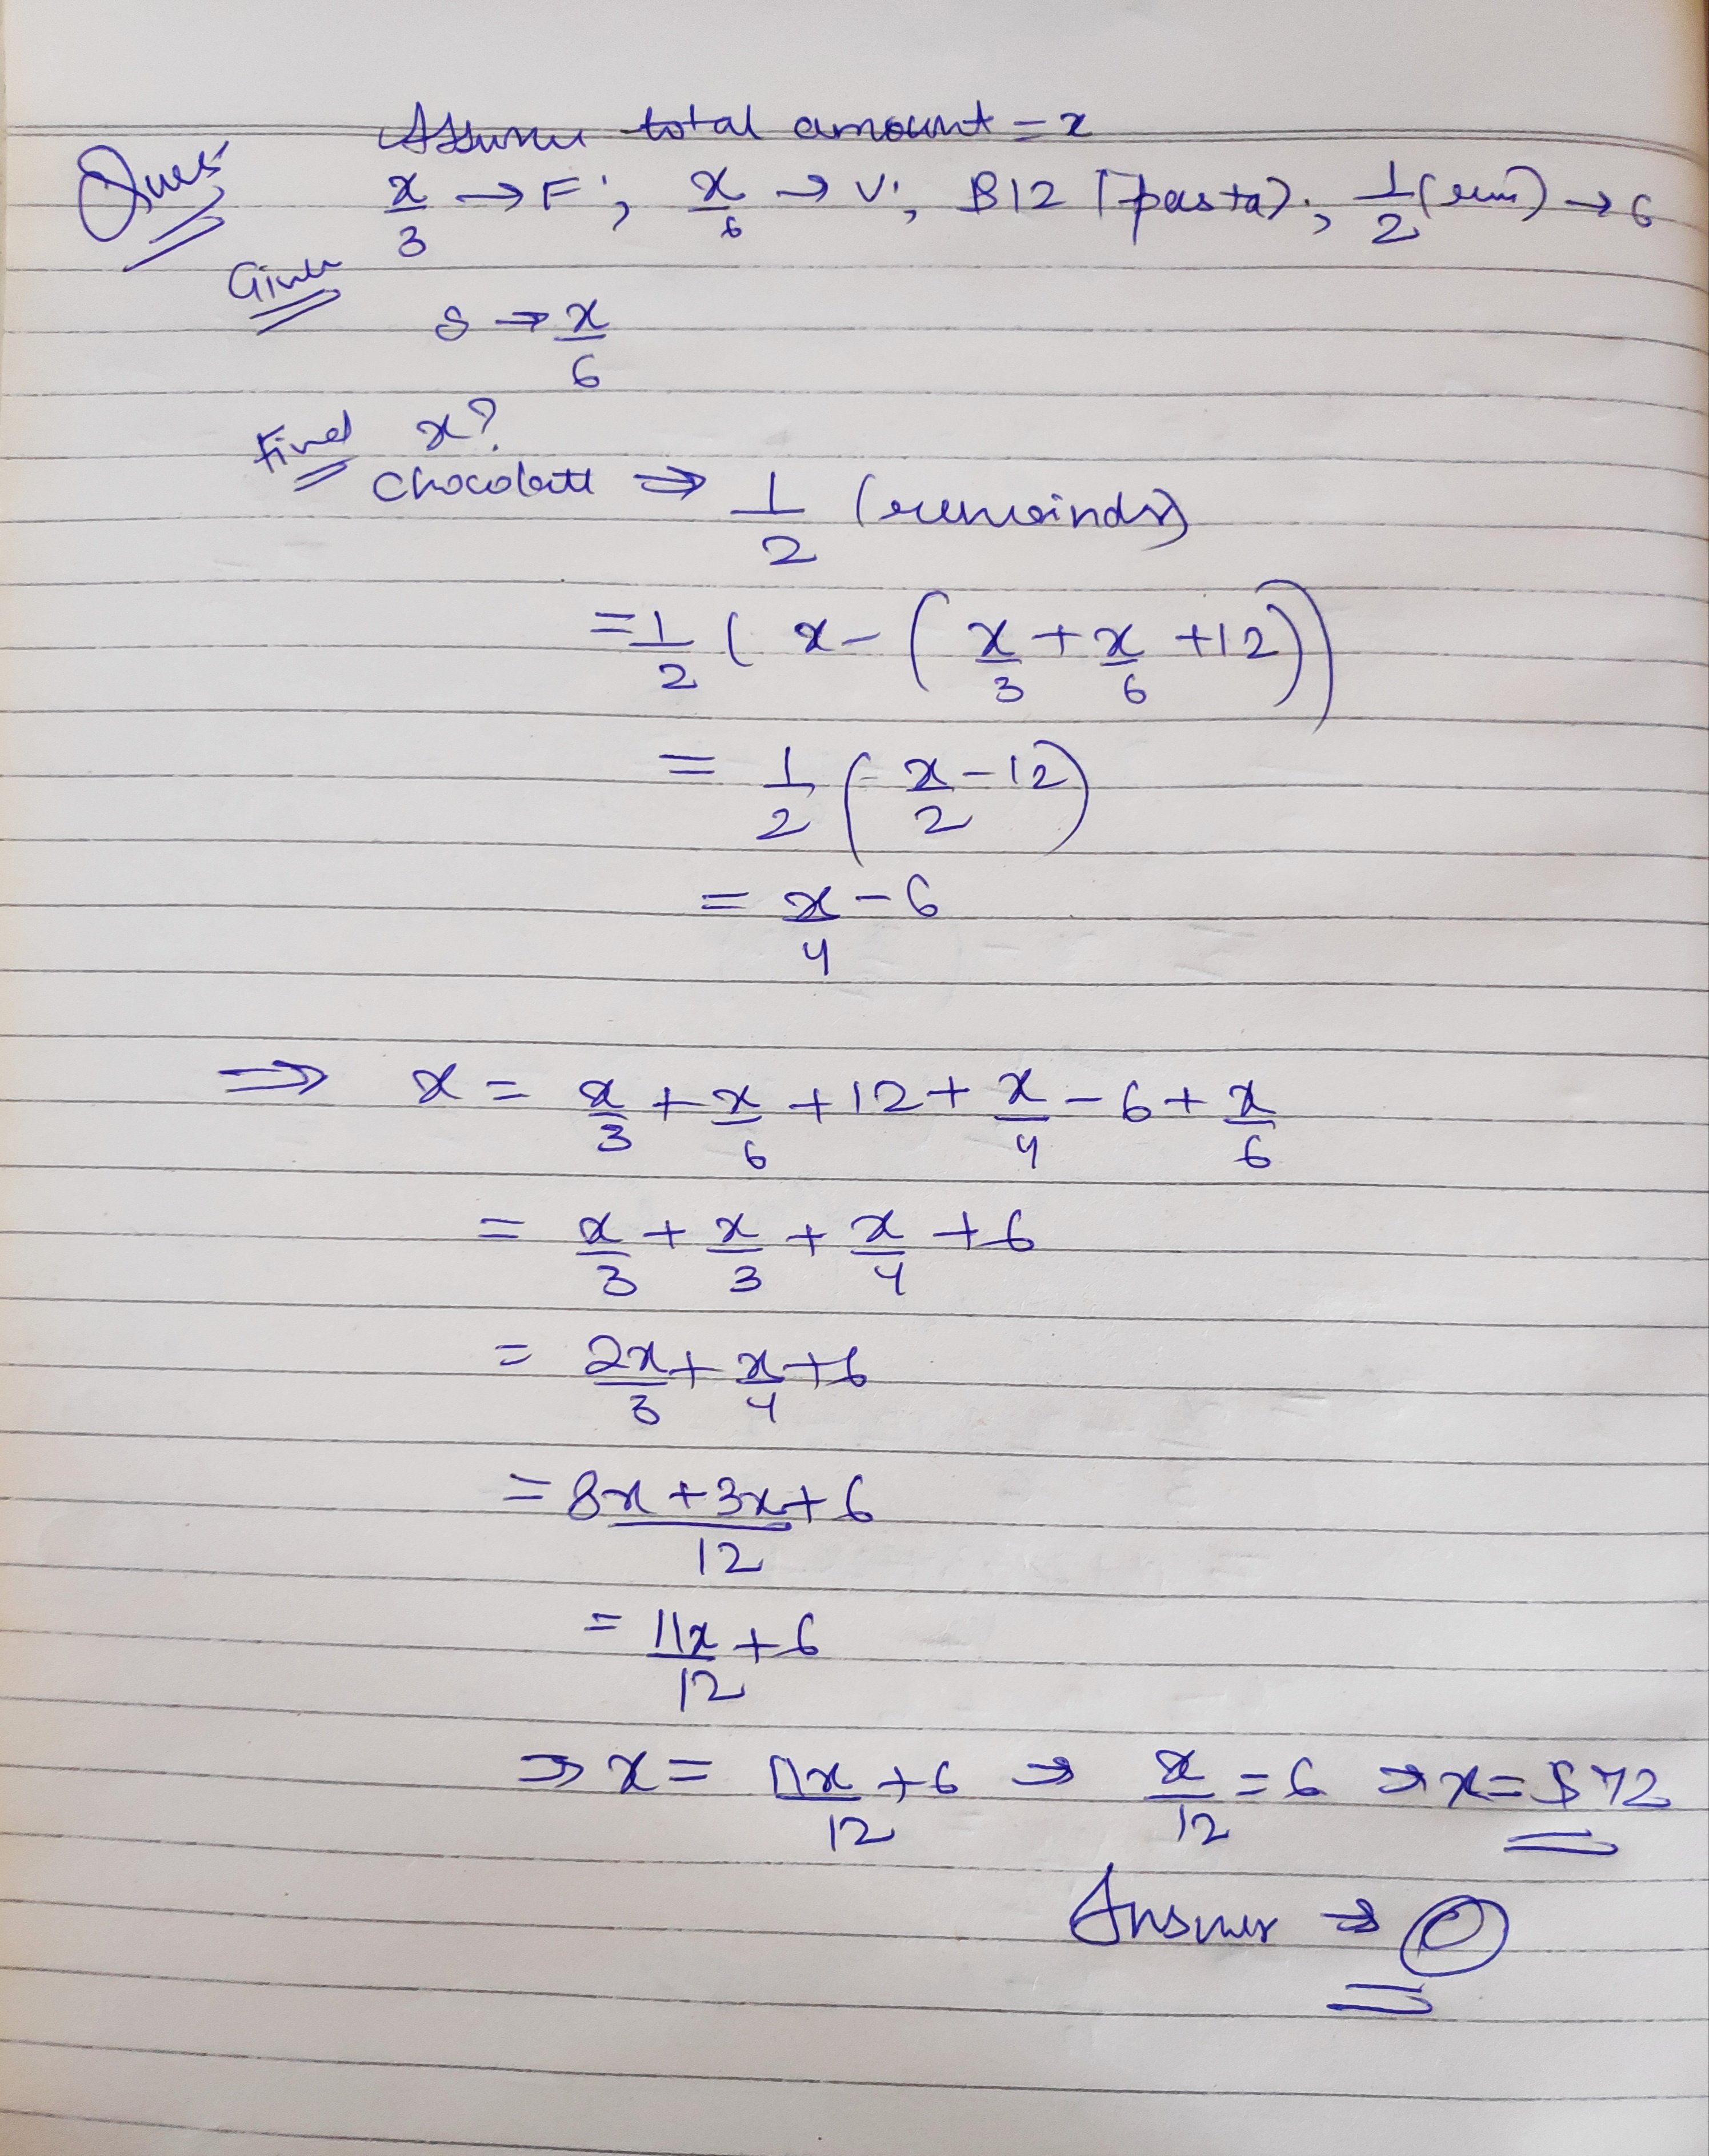 Assume total amount = x
Ques
x/3 → F ; x/6 → V ; $12 (pasta) ; 1/2 (rem) → C
Given
S → x/6
Find x?
Chocolate ⇒ 1/2 (remainder)
= 1/2 ( x - ( x/3 + x/6 + 12 ))
= 1/2 ( x/2 - 12 )
= x/4 - 6
⇒ x = x/3 + x/6 + 12 + x/4 - 6 + x/6
= x/3 + x/3 + x/4 + 6
= 2x/3 + x/4 + 6
= 8x + 3x/12 + 6
= 11x/12 + 6
⇒ x = 11x/12 + 6 ⇒ x/12 = 6 ⇒ x = $72
Answer ⇒